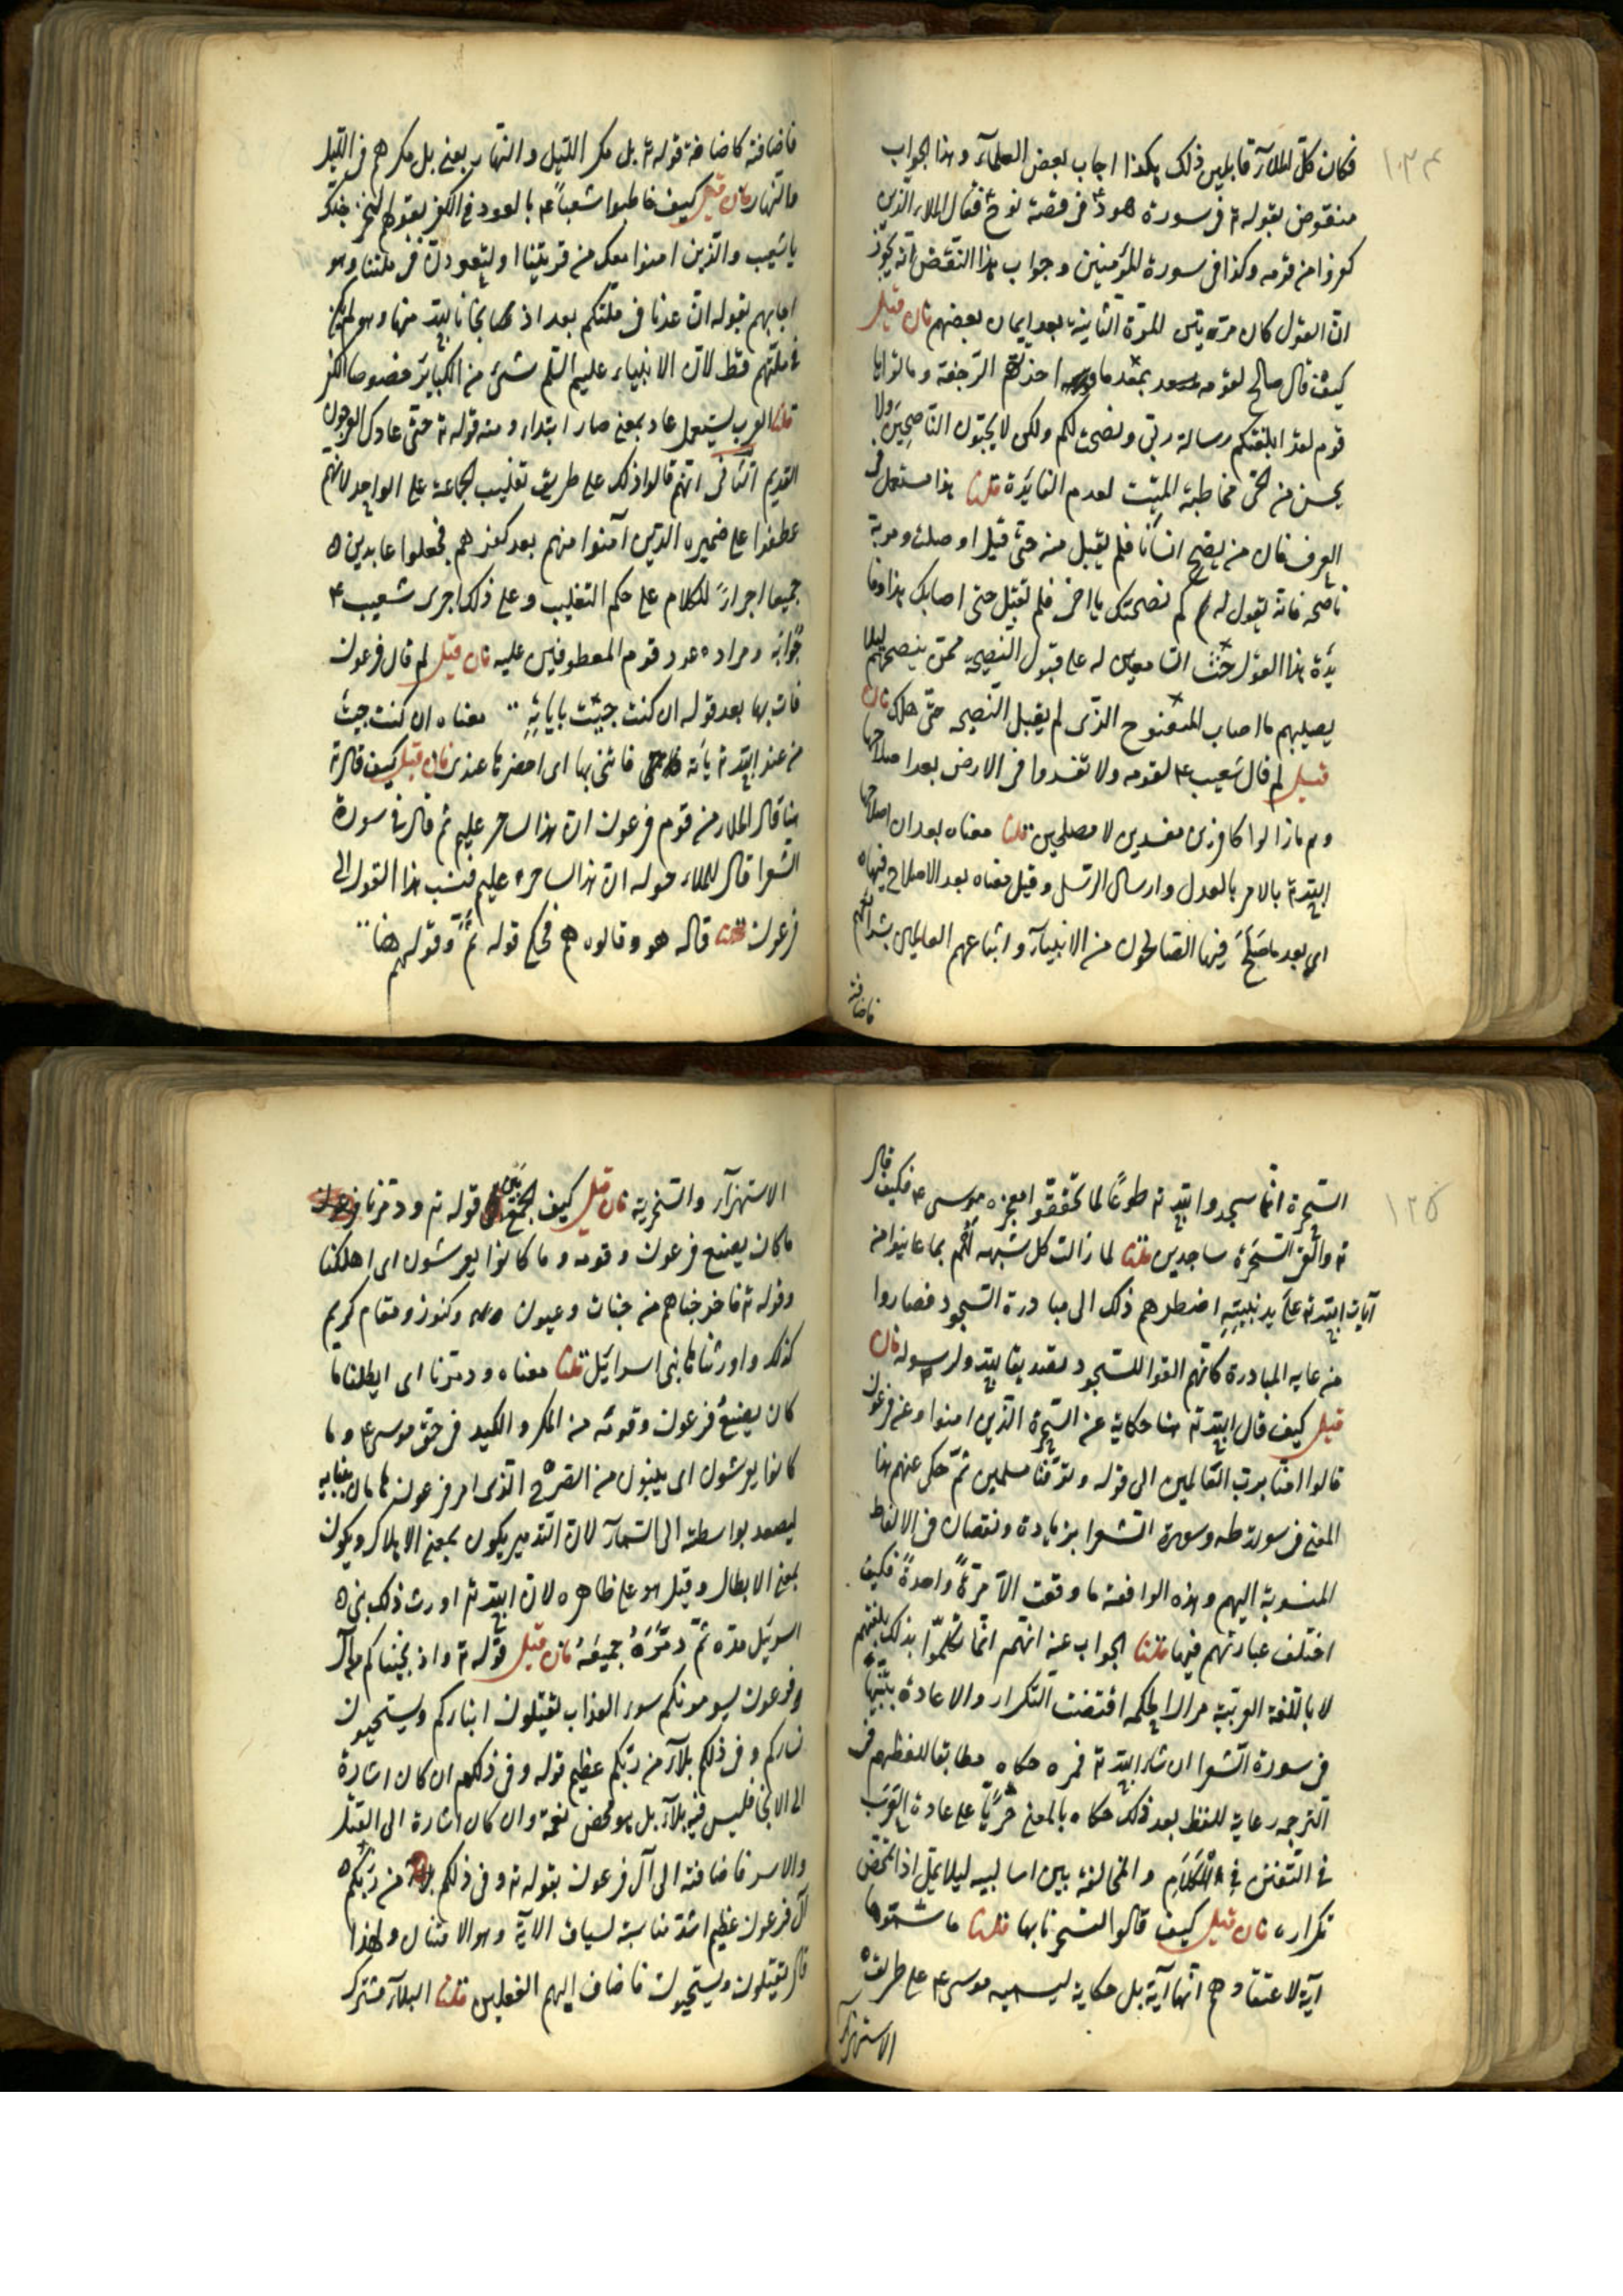 ١٣٤
فكان كلّ الملآء قايلين ذلك هكذا اجاب بعض العلمآء وهذا الجواب
منقوض بقوله تع فى سورة هودٌ فى قصة نوح فقال الملاء الذين
كفروا من قومه وكذا فى سورة المؤمنين وجواب هذا النّقض انّه يجوز
انّ القول كان مرّتين المرّة الثانية بعد ايمان بعضهم فان قيل
كيف قال صالح لقومه بعد ما اخذتهم الرّجفة وماتوا يا
قوم لقد ابلغتكم رسالة ربّى ونصحت لكم ولكن لا تحبّون النّاصحين ولا
يحسن من الحىّ مخاطبة الميّت لعدم الفائدة قلنا هذا مستعمل فى
العرف فان من ينصح انسانا فلم يقبل منه حتّى قتل او صلب ومرّ به
ناصحه فانّه يقول له كم نصحتك يا اخى فلم تقبل حتى اصابك هذا وفا
يدة هذا القول حثّ السّامعين له على قبول النّصيحة ممّن ينصحهم ليلا
يصيبهم ما اصاب المنصوح الذى لم يقبل النّصيحه حتّى هلك فان
قيل لم قال شعيب ع لقومه ولا تفسدوا فى الارض بعد اصلاحها
وهم ما زالوا كافرين مفسدين لا مصلحين قلنا معناه بعد ان اصلاحها
اللّه تع بالامر بالعدل وارسال الرّسل وقيل معناه بعد الاصلاح فيها
اى بعد ما صَلَحَ فيها الصّالحون من الانبيآء واتباعهم العاملين بشرائعهم
فاضافته
فاضافته كاضافة قوله تع بل مكر اللّيل والنّهار بمعنى بل مكرهم فى اللّيل
والنّهار فان قيل كيف خاطبوا شعيباً ع بالعود فى الكفر بقولهم لنخرجنّك
يا شعيب والّذين امنوا معك من قريتنا او لتعودنّ فى ملّتنا وهو
اجابهم بقوله ان عدنا فى ملّتكم بعد اذ نجّانا اللّه منها وهو لم يكن
فى ملّتهم قط لانّ الانبياء عليهم السّلم شىء من الكبائر خصوصا الكفر
قلنا العرب يستعمل عاد بمعنى صار ابتداء ومنه قوله تع حتّى عاد كالعرجون
القديم الثّانى انّهم قالوا ذلك على طريق تغليب الجماعة على الواحد لانّهم
عطفوا على ضميره الذين آمنوا منهم بعد كفرهم فجعلوا عايدين
جميعا اجراءً للكلام على حكم التغليب وعلى ذلك اجرى شعيب ع
جوابه ومراده عود قوم المعطوفين عليه فان قيل لم قال فرعون
فات بها بعد قوله ان كنت جيئت باياتهٍ معناه ان كنت جيت
من عند اللّه تع بآية فاتنى بها اى احضرها عندى فان قيل كيف قال تع
هنا قال الملاء من قوم فرعون انّ هذا لساحر عليم ثم قال فى سورة
الشّعرا قال للملاء حوله انّ هذا لساحر عليم فنسب هذا القول الى
فرعون قلنا قاله هو وقالوه هم فحكى قوله ثمّ وقولهم هنا
١٣٥
السّحرة انّما سجدوا للّه تع طوعًا لما تحقّقوا معجزه موسى ع فكيف قال
تع وألقى السّحَرة ساجدين قلنا لما زالت كل شبهه لهم بما عاينوا من
آيات اللّه تع على يد نبيّهِ اضطرهم ذلك الى مبادرة السّجود فصاروا
من غايه المبادرة كانّهم القوا للسّجود تصديقا للّه ولرسوله فان
قيل كيف قال اللّه تع هنا حكاية عن السّحرة الّذين امنوا وعن فرعون
قالوا امنّا بربّ العالمين الى قوله وتوفّنا مسلمين ثمّ حكى عنهم هذا
المعنى فى سورة طه وسورة الشعرا بزيادة ونقصان فى الالفاظ
المنسوبة اليهم وهذه الواقعة ما وقعت الّا مرّةً واحدةً فكيف
اختلف عبارتهم فيها قلنا الجواب عنه انّهم انّما تكلّموا بذلك بلغتهم
لا باللّغة العربيّة مراراً لحكمه اقتضت التّكرار والاعادة
فى سورة الشّعرا ان شاء اللّه تع فمره حكاه مطابقا للفظهم فى
التّرجمه رعاية للفظ بعد ذلك حكاه بالمعنى جريًا على عادة العَرَب
فى التّفنّن فى الكَلَام والمخالفة بين اساليبه ليلا يملّ اذا تمحّض
تكراره فان قيل كيف قالوا لتسحرنا بها قلنا ما سمّوها
آيةً لاعتقادهم انّها آية بل حكاية لتسميه موسى ع على طريقة
الاستهزآء
الاستهزآء والسّخرية فان قيل كيف الجمع بَين قوله تع ودمّرنا
ما كان يصنع فرعون وقومه وما كانوا يعرشون اى اهلكنا
وقوله تع فاخرجناهم من جنات وعيون وكنوز ومقام كريم
كذلك واورثناها بنى اسرايل قلنا معناه ودمّرنا اى ابطلنا ما
كان يصنعُ فرعون وقومُه من المكر والكيد فى حقّ موسى ع وما
كانوا يعرشون اى يبنون من الصّرح الّذى امر فرعون هامان ببنايه
ليصعد بواسطته الى السّمآء لانّ التّدمير يكون بمعنى الاهلاك ويكون
بمعنى الابطال وقيل هو على ظاهره لانّ اللّه تع اورث ذلك بنى
اسرئيل مدّه ثمّ دمّرَهُ جميعَهُ فان قيل قوله تع واذ نجّيناكم من آل
فرعون يسومونكم سوء العذاب يقتلون ابناءكم ويستحيون
نساءكم وفى ذلكم بلآء من ربّكم عظيم قوله وفى ذلكم ان كان اشارة
الى الانجا فليس فيه بلآء بل هو محض نعمة وان كان اشارة الى القتل
والاسر فاضافته الى آل فرعون بقوله تع وفى ذلكم بلآء من ربّكم
آل فرعون عظيم اشدّ مناسبة لسياق الاية وهو الامتنان ولهذا
قال يقتلون ويستحيون فاضاف اليهم الفعلين قلنا البلآء مشترك